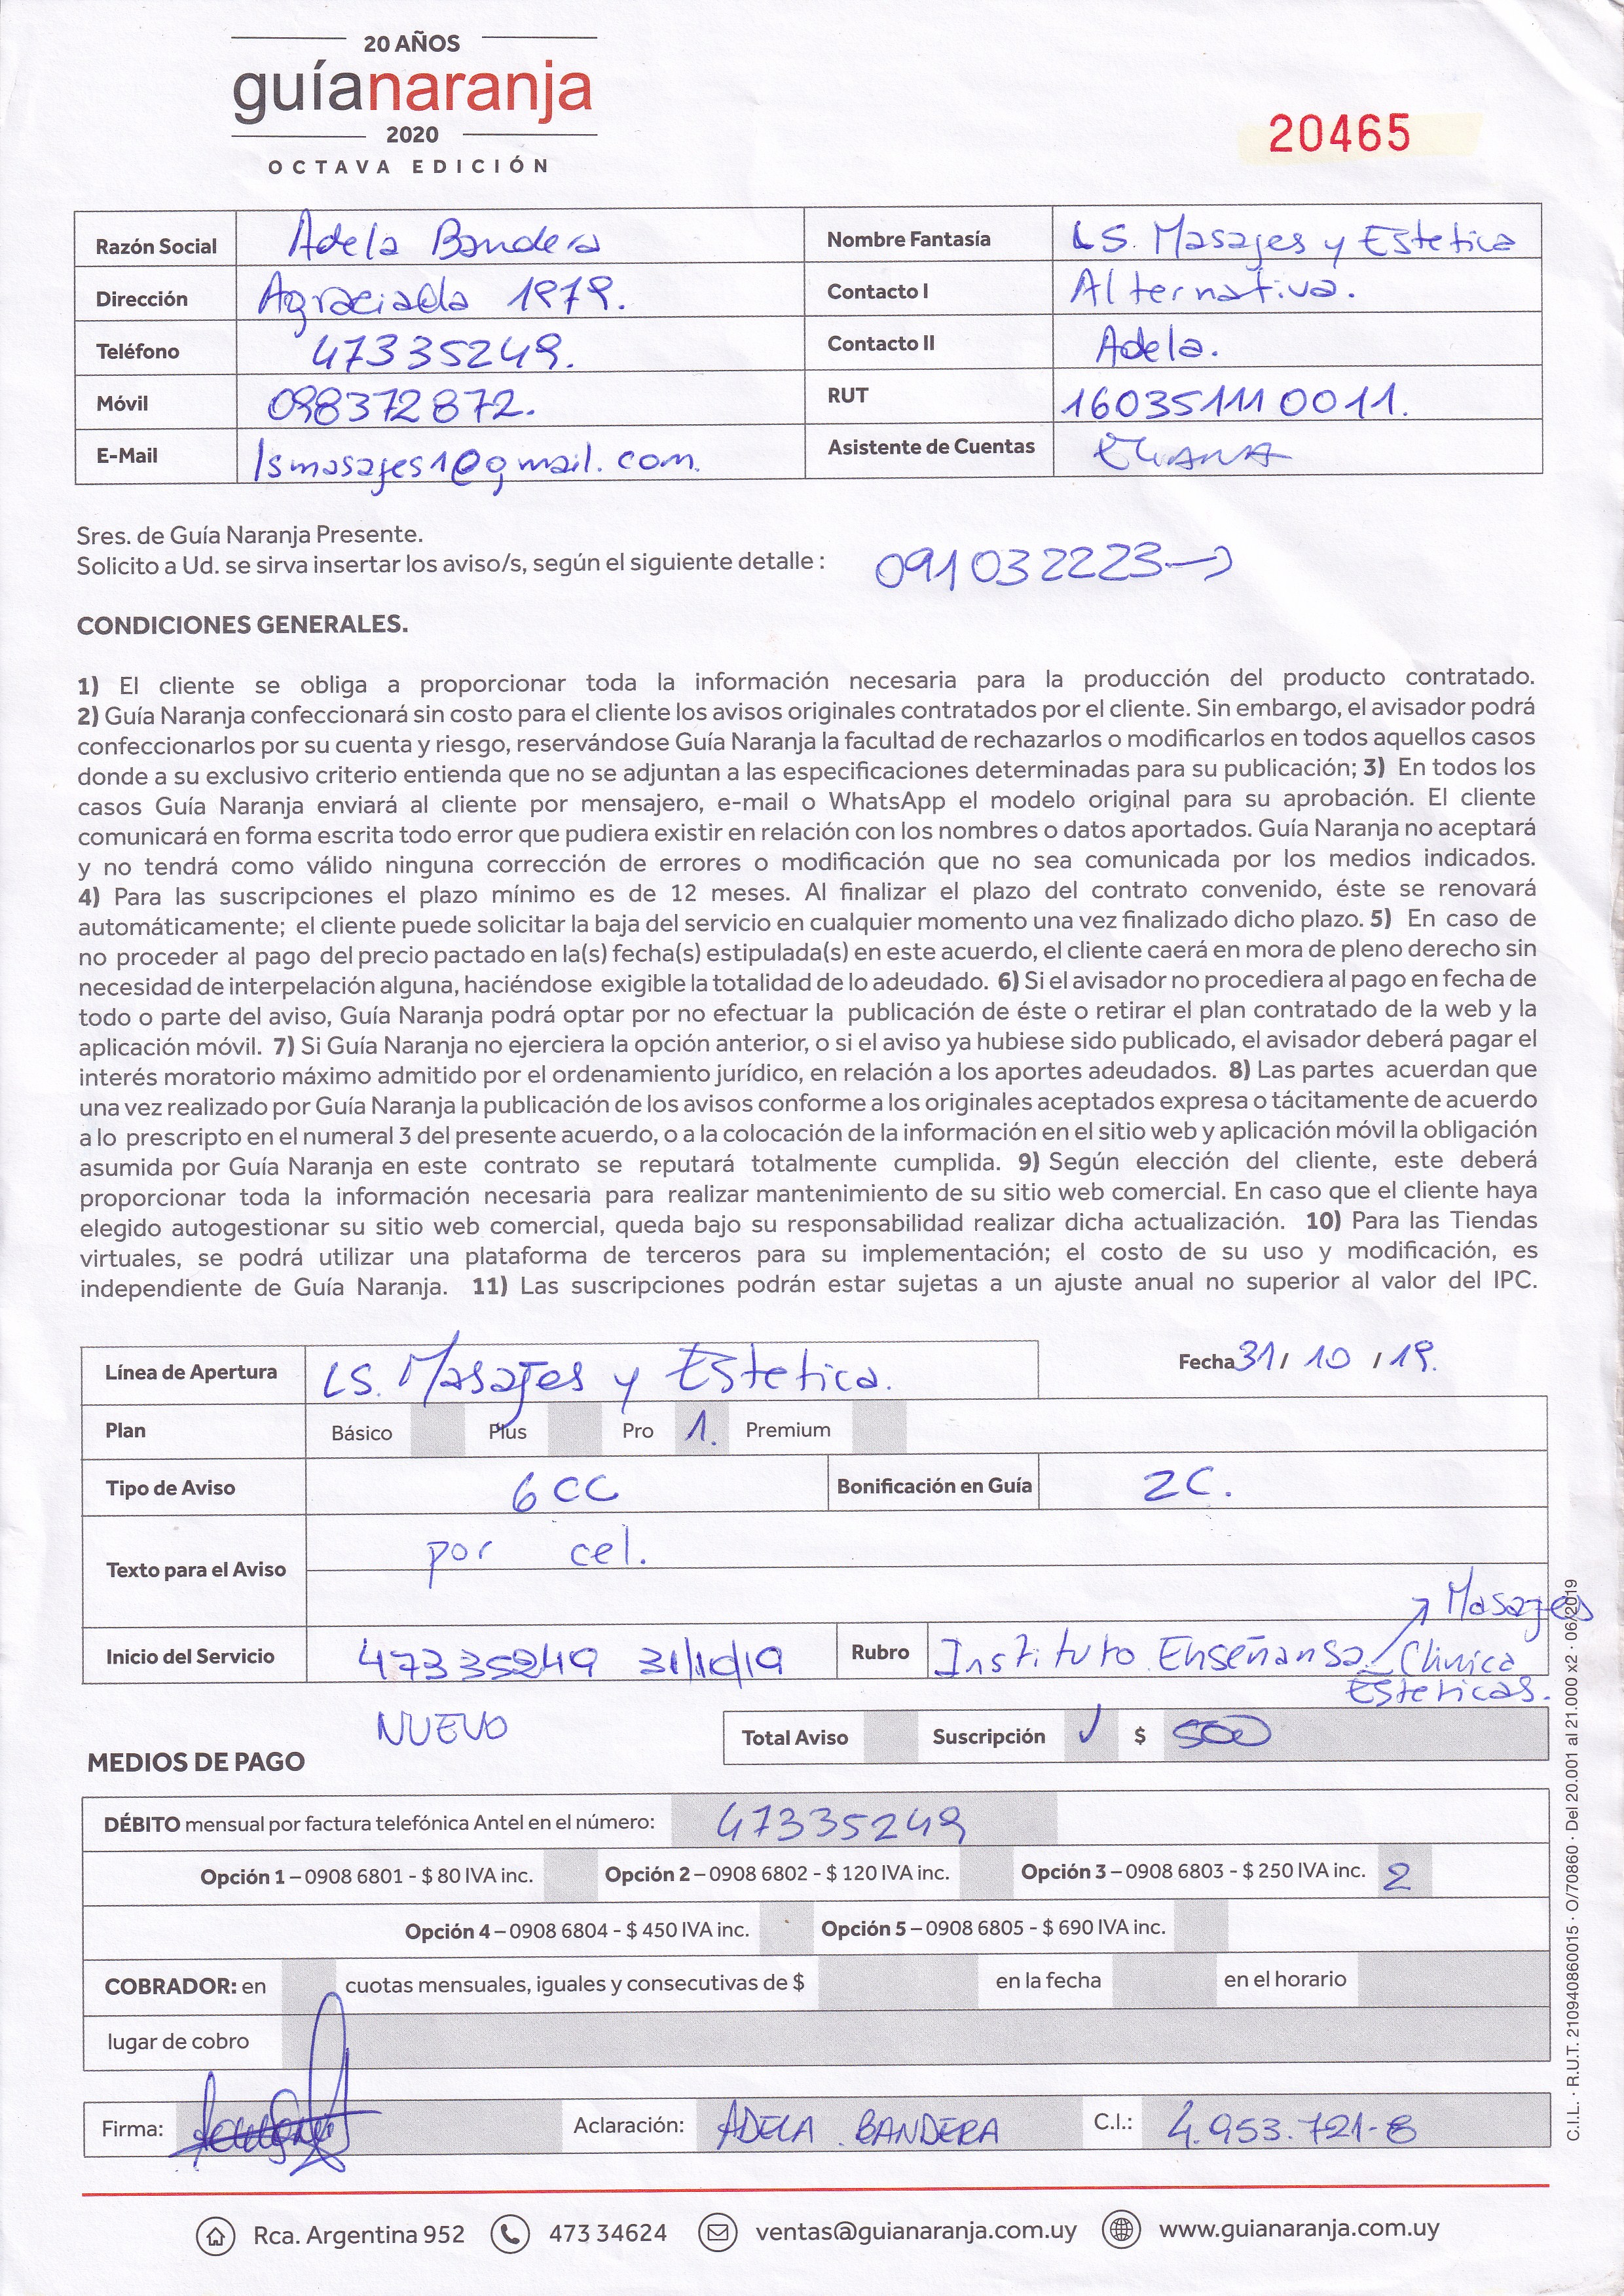 20 AÑOS
guíanaranja
2020
OCTAVA EDICIÓN
20465
Razón Social Adela Bandera Nombre Fantasía LS. Masajes y Estetica
Dirección Agraciada 1979. Contacto I Alternativa.
Teléfono 47335249. Contacto II Adela.
Móvil 098372872. RUT 160351110011.
E-Mail lsmasajes1@gmail.com. Asistente de Cuentas
Sres. de Guía Naranja Presente.
Solicito a Ud. se sirva insertar los aviso/s, según el siguiente detalle : 091032223
CONDICIONES GENERALES.
1) El cliente se obliga a proporcionar toda la información necesaria para la producción del producto contratado.
2) Guía Naranja confeccionará sin costo para el cliente los avisos originales contratados por el cliente. Sin embargo, el avisador podrá
confeccionarlos por su cuenta y riesgo, reservándose Guía Naranja la facultad de rechazarlos o modificarlos en todos aquellos casos
donde a su exclusivo criterio entienda que no se adjuntan a las especificaciones determinadas para su publicación; 3) En todos los
casos Guía Naranja enviará al cliente por mensajero, e-mail o WhatsApp el modelo original para su aprobación. El cliente
comunicará en forma escrita todo error que pudiera existir en relación con los nombres o datos aportados. Guía Naranja no aceptará
y no tendrá como válido ninguna corrección de errores o modificación que no sea comunicada por los medios indicados.
4) Para las suscripciones el plazo mínimo es de 12 meses. Al finalizar el plazo del contrato convenido, éste se renovará
automáticamente; el cliente puede solicitar la baja del servicio en cualquier momento una vez finalizado dicho plazo. 5) En caso de
no proceder al pago del precio pactado en la(s) fecha(s) estipulada(s) en este acuerdo, el cliente caerá en mora de pleno derecho sin
necesidad de interpelación alguna, haciéndose exigible la totalidad de lo adeudado. 6) Si el avisador no procediera al pago en fecha de
todo o parte del aviso, Guía Naranja podrá optar por no efectuar la publicación de éste o retirar el plan contratado de la web y la
aplicación móvil. 7) Si Guía Naranja no ejerciera la opción anterior, o si el aviso ya hubiese sido publicado, el avisador deberá pagar el
interés moratorio máximo admitido por el ordenamiento jurídico, en relación a los aportes adeudados. 8) Las partes acuerdan que
una vez realizado por Guía Naranja la publicación de los avisos conforme a los originales aceptados expresa o tácitamente de acuerdo
a lo prescripto en el numeral 3 del presente acuerdo, o a la colocación de la información en el sitio web y aplicación móvil la obligación
asumida por Guía Naranja en este contrato se reputará totalmente cumplida. 9) Según elección del cliente, este deberá
proporcionar toda la información necesaria para realizar mantenimiento de su sitio web comercial. En caso que el cliente haya
elegido autogestionar su sitio web comercial, queda bajo su responsabilidad realizar dicha actualización. 10) Para las Tiendas
virtuales, se podrá utilizar una plataforma de terceros para su implementación; el costo de su uso y modificación, es
independiente de Guía Naranja. 11) Las suscripciones podrán estar sujetas a un ajuste anual no superior al valor del IPC.
Línea de Apertura LS. Masajes y Estetica. Fecha 31 / 10 / 19.
Plan Básico Plus Pro 1. Premium
Tipo de Aviso 6 CC Bonificación en Guía 2C.
Texto para el Aviso por cel.
Masajes
Inicio del Servicio 47335249 31/10/19 Rubro Instituto Enseñansa Clinica
Esteticas.
NUEVO
Total Aviso Suscripción ✓ $ 500
MEDIOS DE PAGO
DÉBITO mensual por factura telefónica Antel en el número: 47335249
Opción 1 – 0908 6801 - $ 80 IVA inc. Opción 2 – 0908 6802 - $ 120 IVA inc. Opción 3 – 0908 6803 - $ 250 IVA inc. 2
Opción 4 – 0908 6804 - $ 450 IVA inc. Opción 5 – 0908 6805 - $ 690 IVA inc.
COBRADOR: en cuotas mensuales, iguales y consecutivas de $ en la fecha en el horario
lugar de cobro
Firma: Aclaración: ADELA BANDERA C.I.: 4.953.721-8
Rca. Argentina 952 473 34624 ventas@guianaranja.com.uy www.guianaranja.com.uy
C.I.L. · R.U.T. 210940860015 · O/70860 · Del 20.001 al 21.000 x2 · 06/2019